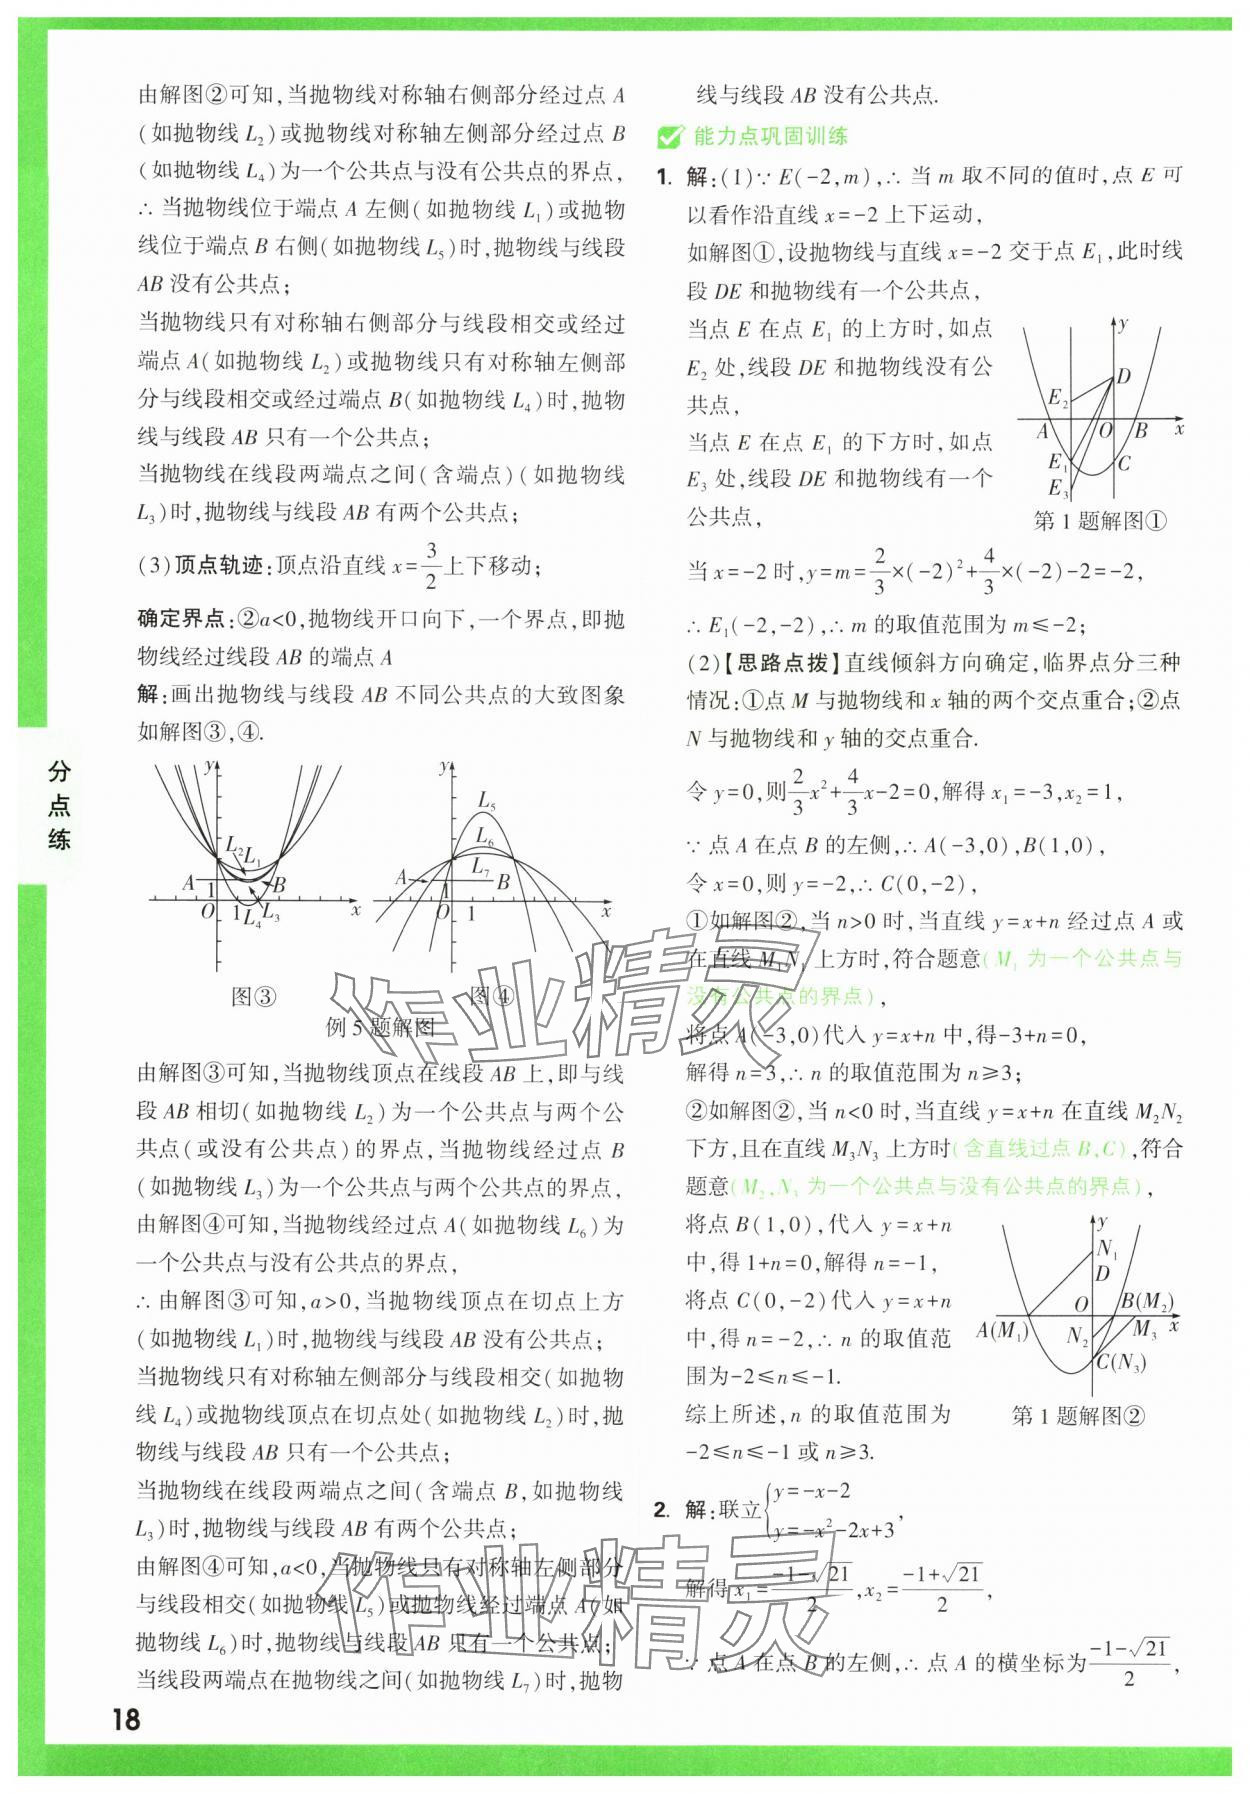 由解图②可知,当抛物线对称轴右侧部分经过点 A
(如抛物线 L₂)或抛物线对称轴左侧部分经过点 B
(如抛物线 L₄)为一个公共点与没有公共点的界点,
∴ 当抛物线位于端点 A 左侧(如抛物线 L₁)或抛物
线位于端点 B 右侧(如抛物线 L₅)时,抛物线与线段
AB 没有公共点;
当抛物线只有对称轴右侧部分与线段相交或经过
端点 A(如抛物线 L₂)或抛物线只有对称轴左侧部
分与线段相交或经过端点 B(如抛物线 L₄)时,抛物
线与线段 AB 只有一个公共点;
当抛物线在线段两端点之间(含端点)(如抛物线
L₃)时,抛物线与线段 AB 有两个公共点;
(3)顶点轨迹:顶点沿直线 x=3/2上下移动;
确定界点:②a<0,抛物线开口向下,一个界点,即抛
物线经过线段 AB 的端点 A
解:画出抛物线与线段 AB 不同公共点的大致图象
如解图③,④.
y
L₂
L₁
A
B
1
O
1
L₄
L₃
x
图③
y
L₅
L₆
L₇
A
B
1
O
1
x
图④
例 5 题解图
由解图③可知,当抛物线顶点在线段 AB 上,即与线
段 AB 相切(如抛物线 L₂)为一个公共点与两个公
共点(或没有公共点)的界点,当抛物线经过点 B
(如抛物线 L₃)为一个公共点与两个公共点的界点,
由解图④可知,当抛物线经过点 A(如抛物线 L₆)为
一个公共点与没有公共点的界点,
∴ 由解图③可知,a>0,当抛物线顶点在切点上方
(如抛物线 L₁)时,抛物线与线段 AB 没有公共点;
当抛物线只有对称轴左侧部分与线段相交(如抛物
线 L₄)或抛物线顶点在切点处(如抛物线 L₂)时,抛
物线与线段 AB 只有一个公共点;
当抛物线在线段两端点之间(含端点 B,如抛物线
L₃)时,抛物线与线段 AB 有两个公共点;
由解图④可知,a<0,当抛物线只有对称轴左侧部分
与线段相交(如抛物线 L₅)或抛物线经过端点 A(如
抛物线 L₆)时,抛物线与线段 AB 只有一个公共点;
当线段两端点在抛物线之间(如抛物线 L₇)时,抛物
线与线段 AB 没有公共点.
能力点巩固训练
1. 解:(1)∵ E(-2,m),∴ 当 m 取不同的值时,点 E 可
以看作沿直线 x=-2 上下运动,
如解图①,设抛物线与直线 x=-2 交于点 E₁,此时线
段 DE 和抛物线有一个公共点,
当点 E 在点 E₁ 的上方时,如点
E₂ 处,线段 DE 和抛物线没有公
共点,
当点 E 在点 E₁ 的下方时,如点
E₃ 处,线段 DE 和抛物线有一个
公共点,
y
D
E₂
A
O
B
x
E₁
C
E₃
第 1 题解图①
当 x=-2 时,y=m=2/3×(-2)²+4/3×(-2)-2=-2,
∴ E₁(-2,-2),∴ m 的取值范围为 m≤-2;
(2)【思路点拨】直线倾斜方向确定,临界点分三种
情况:①点 M 与抛物线和 x 轴的两个交点重合;②点
N 与抛物线和 y 轴的交点重合.
令 y=0,则2/3x²+4/3x-2=0,解得 x₁=-3,x₂=1,
∵ 点 A 在点 B 的左侧,∴ A(-3,0),B(1,0),
令 x=0,则 y=-2,∴ C(0,-2),
①如解图②,当 n>0 时,当直线 y=x+n 经过点 A 或
在直线 M₁N₁ 上方时,符合题意(M₁ 为一个公共点与
没有公共点的界点),
将点 A(-3,0)代入 y=x+n 中,得-3+n=0,
解得 n=3,∴ n 的取值范围为 n≥3;
②如解图②,当 n<0 时,当直线 y=x+n 在直线 M₂N₂
下方,且在直线 M₃N₃ 上方时(含直线过点 B,C),符合
题意(M₂,N₃ 为一个公共点与没有公共点的界点),
将点 B(1,0),代入 y=x+n
中,得 1+n=0,解得 n=-1,
将点 C(0,-2)代入 y=x+n
中,得 n=-2,∴ n 的取值范
围为-2≤n≤-1.
综上所述,n 的取值范围为
-2≤n≤-1 或 n≥3.
y
N₁
D
O
B(M₂)
A(M₁)
N₂
M₃
x
C(N₃)
第 1 题解图②
2. 解:联立{y=-x-2
y=-x²-2x+3,
解得 x₁=(-1-√21)/2,x₂=(-1+√21)/2,
∵ 点 A 在点 B 的左侧,∴ 点 A 的横坐标为(-1-√21)/2,
分点练
18
作业精灵
作业精灵